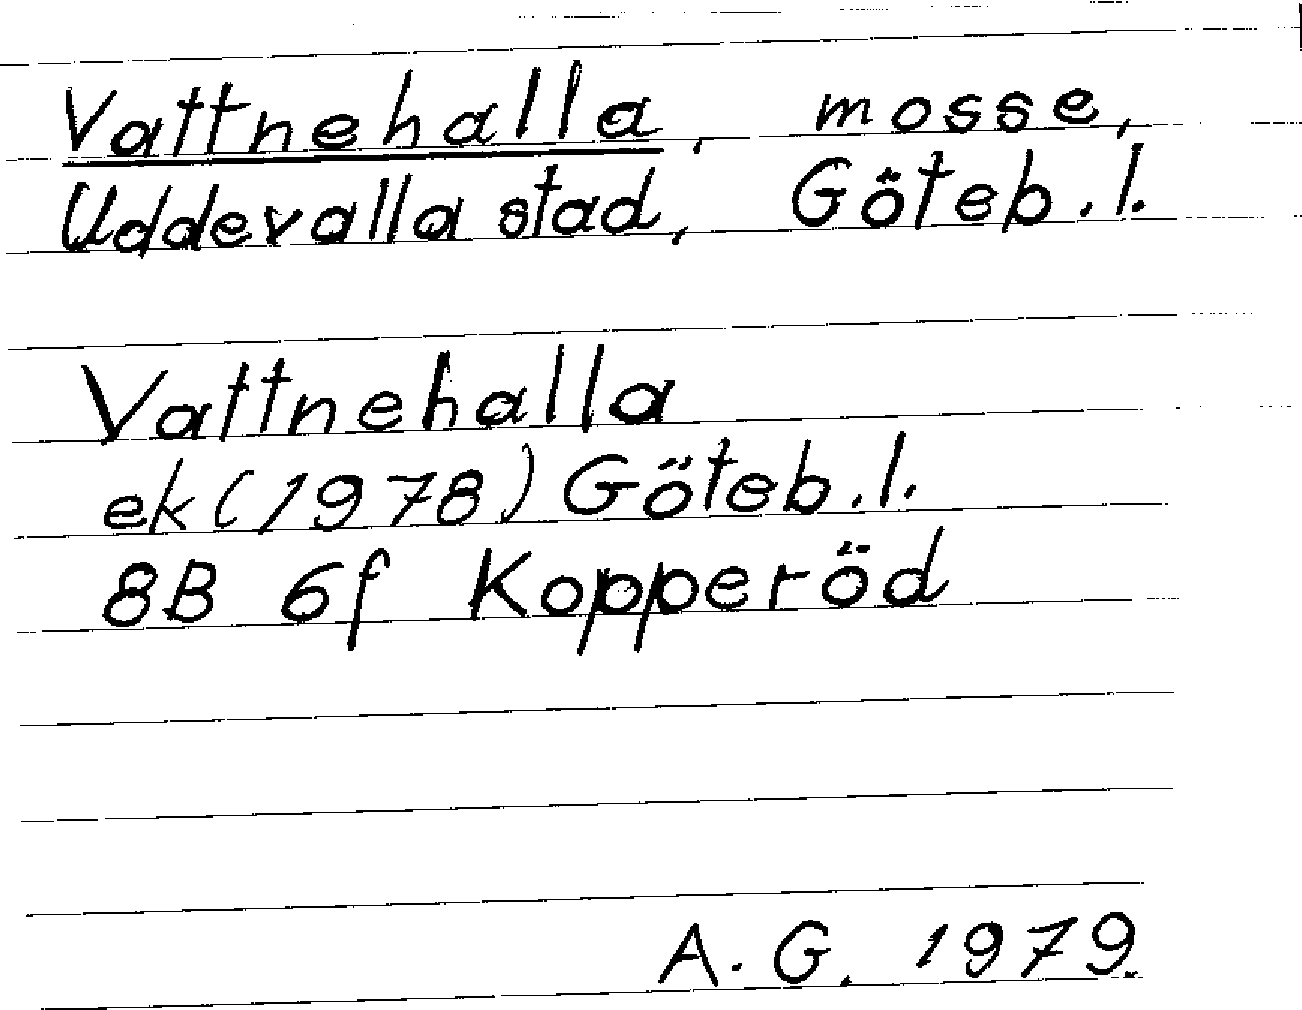 Vattnehalla, mosse,
Uddevalla stad, Göteb.l.
Vattnehalla
ek (1978) Göteb.l.
8B 6f Kopperöd
A. G. 1979.